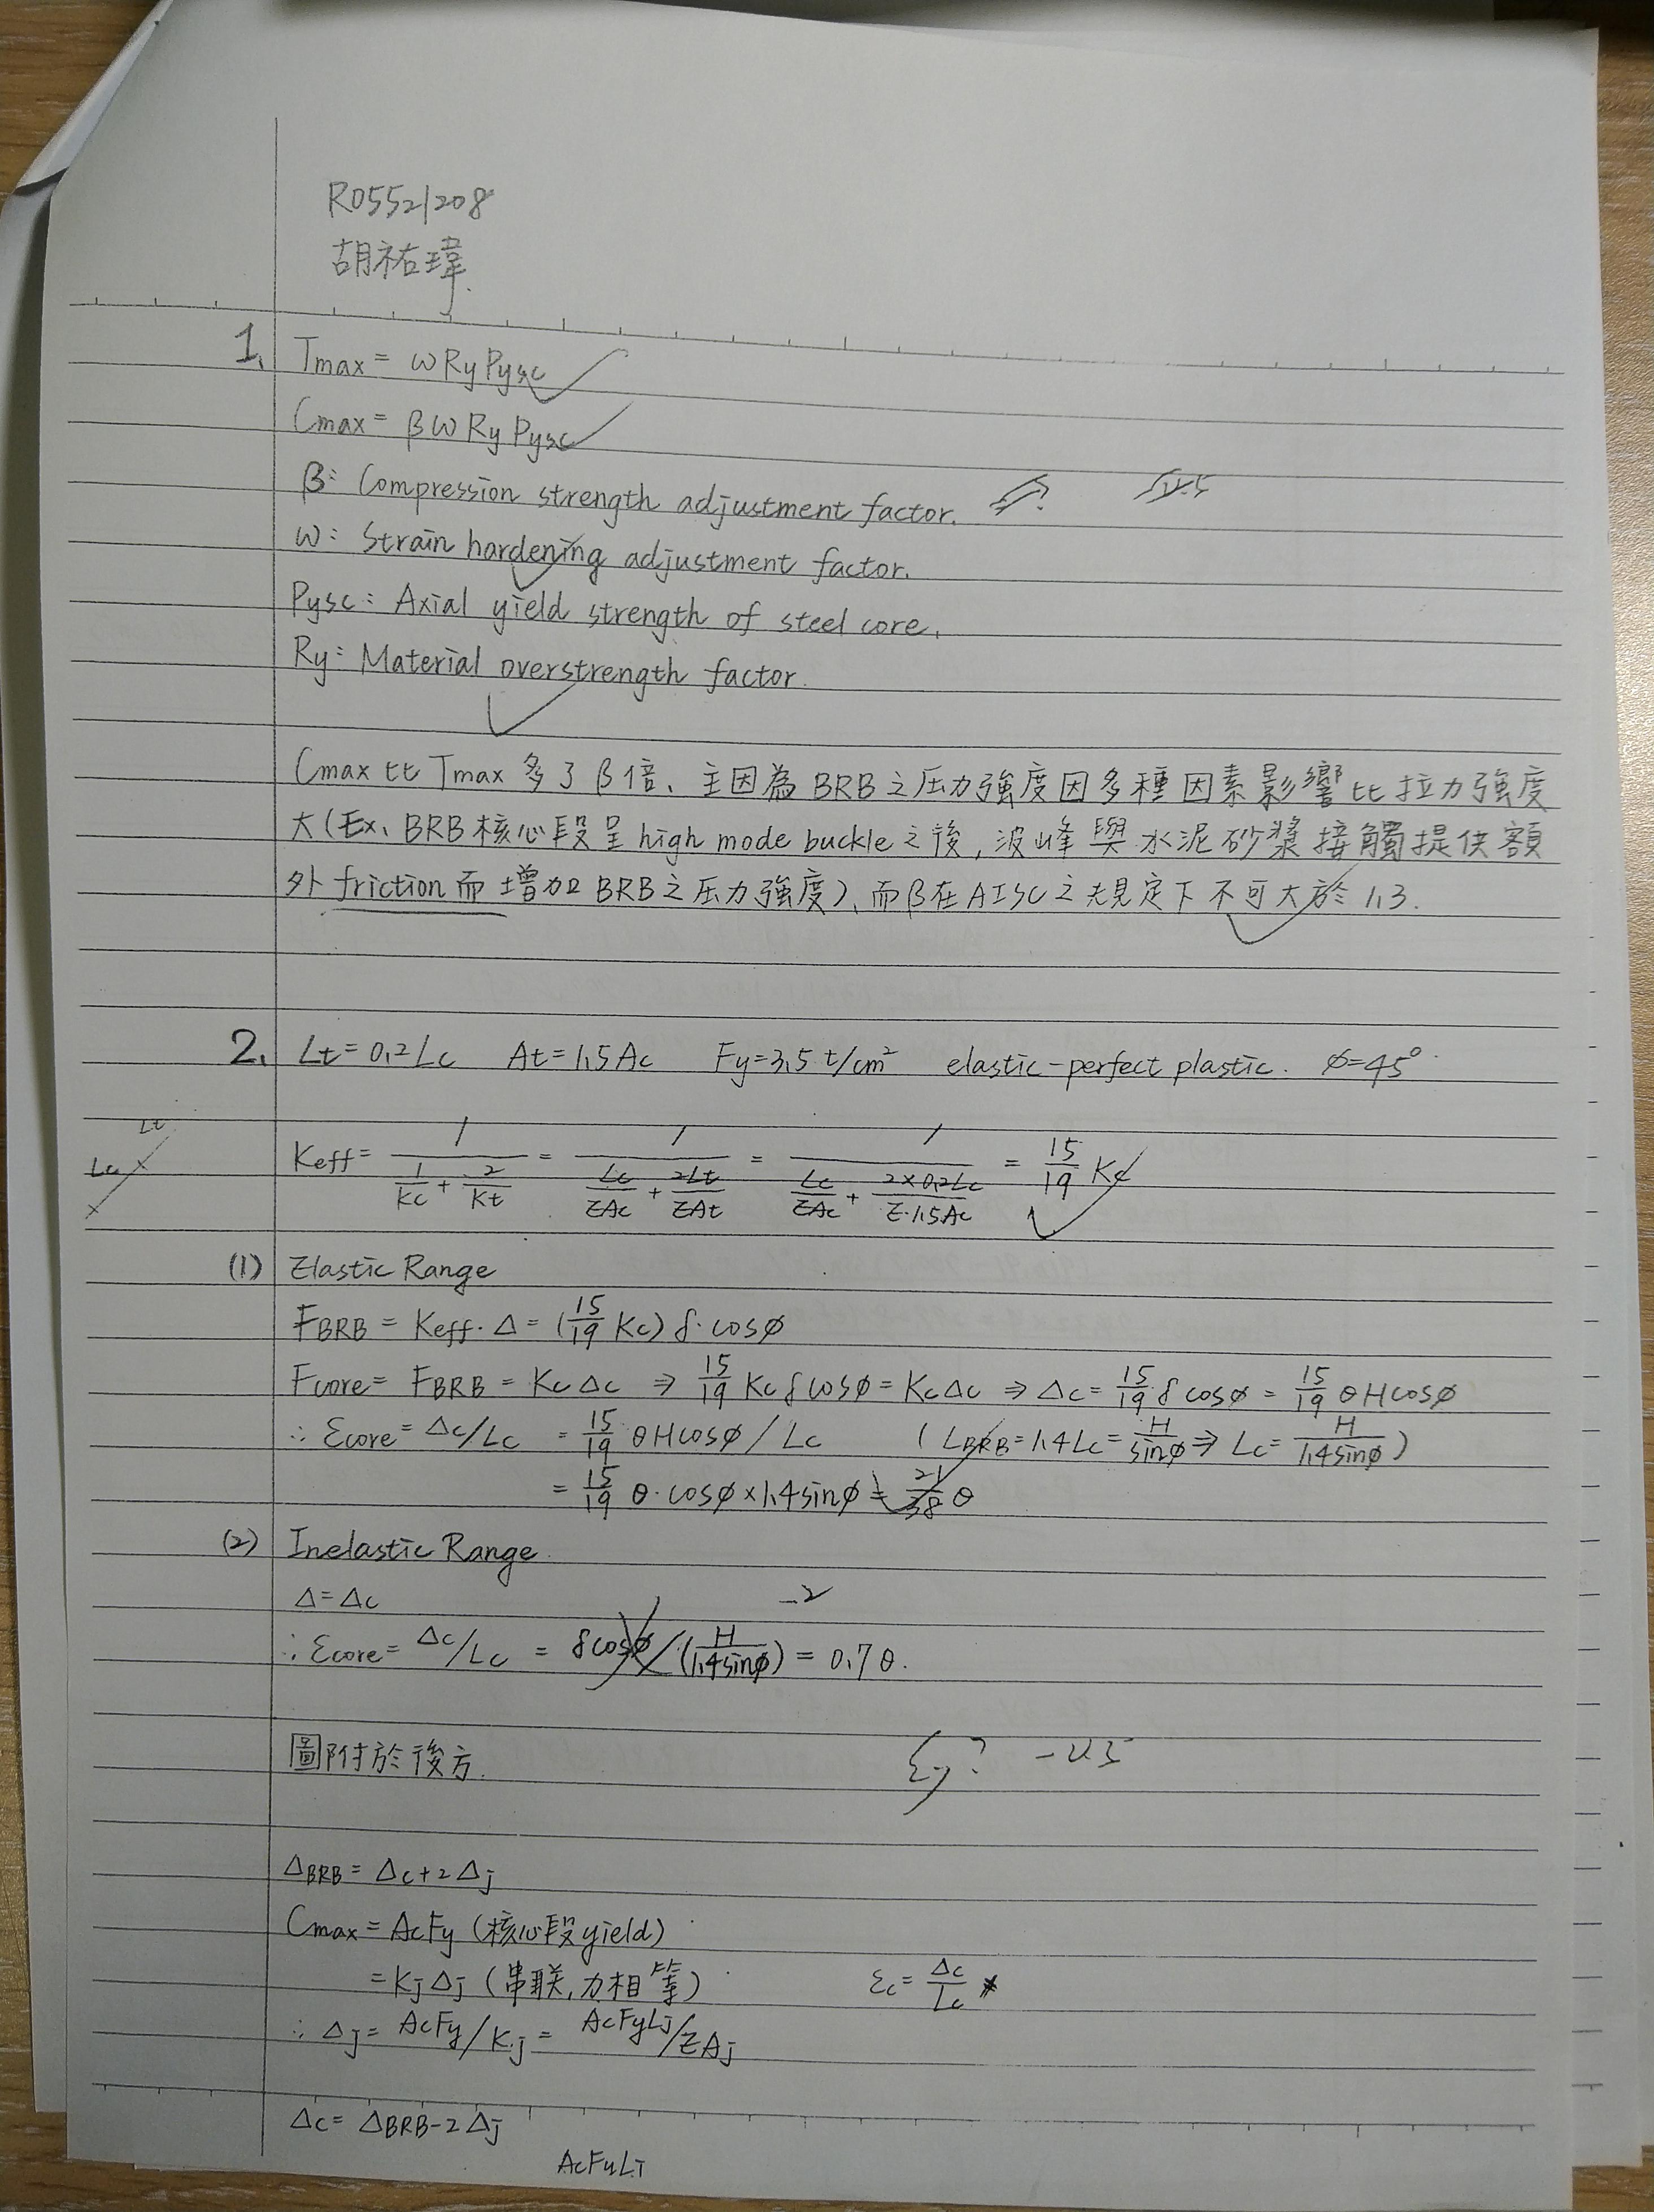 R05521208
胡祐瑋
1. Tmax = ωRyPysc
Cmax = βωRyPysc
β: Compression strength adjustment factor.
ω: Strain hardening adjustment factor.
Pysc: Axial yield strength of steel core.
Ry: Material overstrength factor.
Cmax比Tmax多了β倍、主因為BRB之压力強度因多種因素影響比拉力強度
大(Ex、BRB核心段呈high mode buckle之後,波峰與水泥砂漿接觸提供額
外friction而增加BRB之压力強度)、而β在AISC之規定下不可大於1.3.
2. Lt=0.2Lc At=1.5Ac Fy=3.5 t/cm² elastic-perfect plastic. φ=45°
Lt
Lc
Keff = 1/(1/Kc + 2/Kt) = 1/(Lc/EAc + 2Lt/EAt) = 1/(Lc/EAc + 2×0.2Lc/E·1.5Ac) = 15/19 Kc
(1) Elastic Range
FBRB = Keff·Δ = (15/19 Kc) δ·cosφ
Fcore = FBRB = KcΔc ⇒ 15/19 Kc δcosφ = KcΔc ⇒ Δc = 15/19 δcosφ = 15/19 θHcosφ
∴ εcore = Δc/Lc = 15/19 θHcosφ/Lc (LBRB=1.4Lc=H/sinφ ⇒ Lc=H/1.4sinφ)
= 15/19 θ·cosφ×1.4sinφ = 21/38 θ
(2) Inelastic Range.
Δ=Δc -2
∴ εcore = Δc/Lc = δcosφ/(H/1.4sinφ) = 0.7θ.
圖附於後方. εy? -0.5
ΔBRB = Δc+2Δj
Cmax = AcFy (核心段yield)
= KjΔj (串联,力相等) εc = Δc/Lc
∴ Δj = AcFy/Kj = AcFyLj/EAj
Δc = ΔBRB-2Δj
AcFyLj